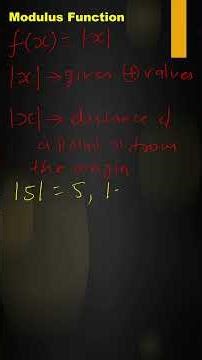 Modulus Function
f(x) = |x|
|x| → gives (+) values
|x| → distance of
a point x from
the origin
|5| = 5, |-